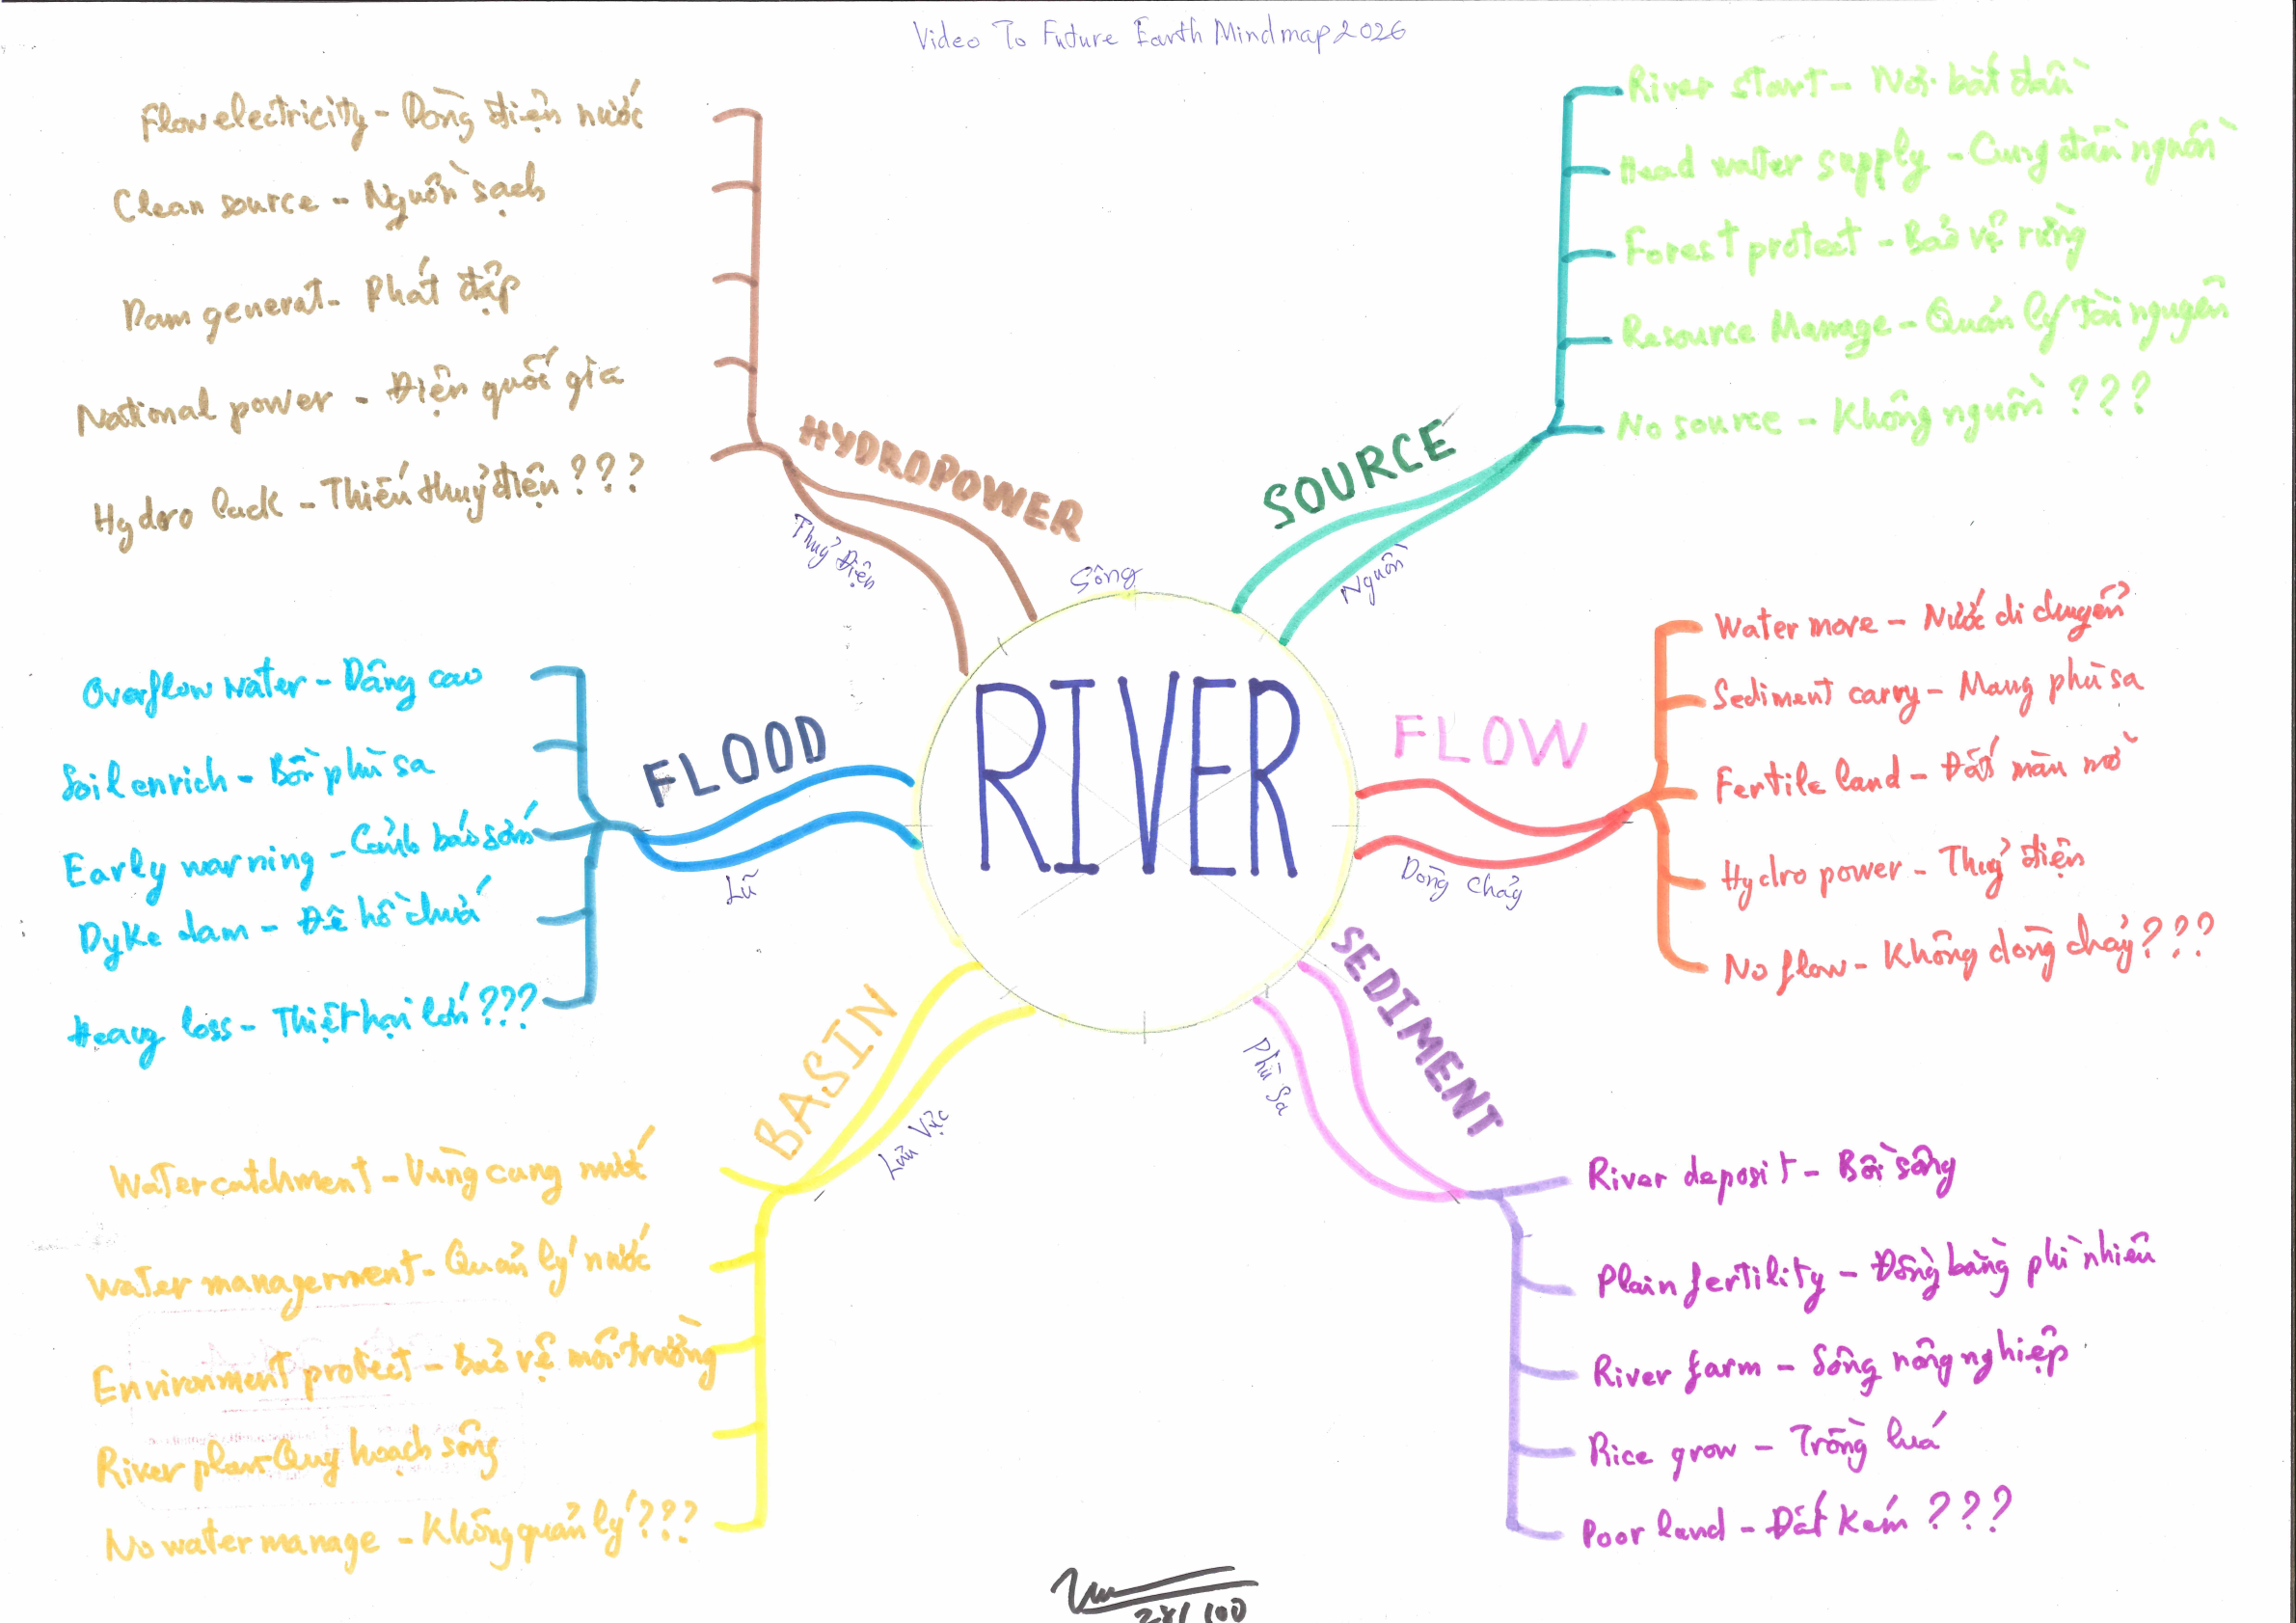 Video To Future Earth Mindmap 2026
RIVER
Sông
SOURCE
Nguồn
River start - Nơi bắt đầu
Head water supply - Cung đầu nguồn
Forest protect - Bảo vệ rừng
Resource Manage - Quản lý tài nguyên
No source - Không nguồn ???
FLOW
Dòng chảy
Water move - Nước di chuyển
Sediment carry - Mang phù sa
Fertile land - Đất màu mỡ
Hydro power - Thuỷ điện
No flow - Không dòng chảy ???
SEDIMENT
Phù Sa
River deposit - Bồi sông
Plain fertility - Đồng bằng phì nhiêu
River farm - Sông nông nghiệp
Rice grow - Trồng lúa
Poor land - Đất kém ???
BASIN
Lưu Vực
Water catchment - Vùng cung nước
Water management - Quản lý nước
Environment protect - Bảo vệ môi trường
River plan - Quy hoạch sông
No water manage - Không quản lý ???
FLOOD
Lũ
Overflow water - Dâng cao
Soil enrich - Bồi phù sa
Early warning - Cảnh báo sớm
Dyke dam - Đê hồ chứa
Heavy loss - Thiệt hại lớn ???
HYDROPOWER
Thuỷ Điện
Flow electricity - Dòng điện nước
Clean source - Nguồn sạch
Dam generat - Phát đập
National power - Điện quốc gia
Hydro lack - Thiếu thuỷ điện ???